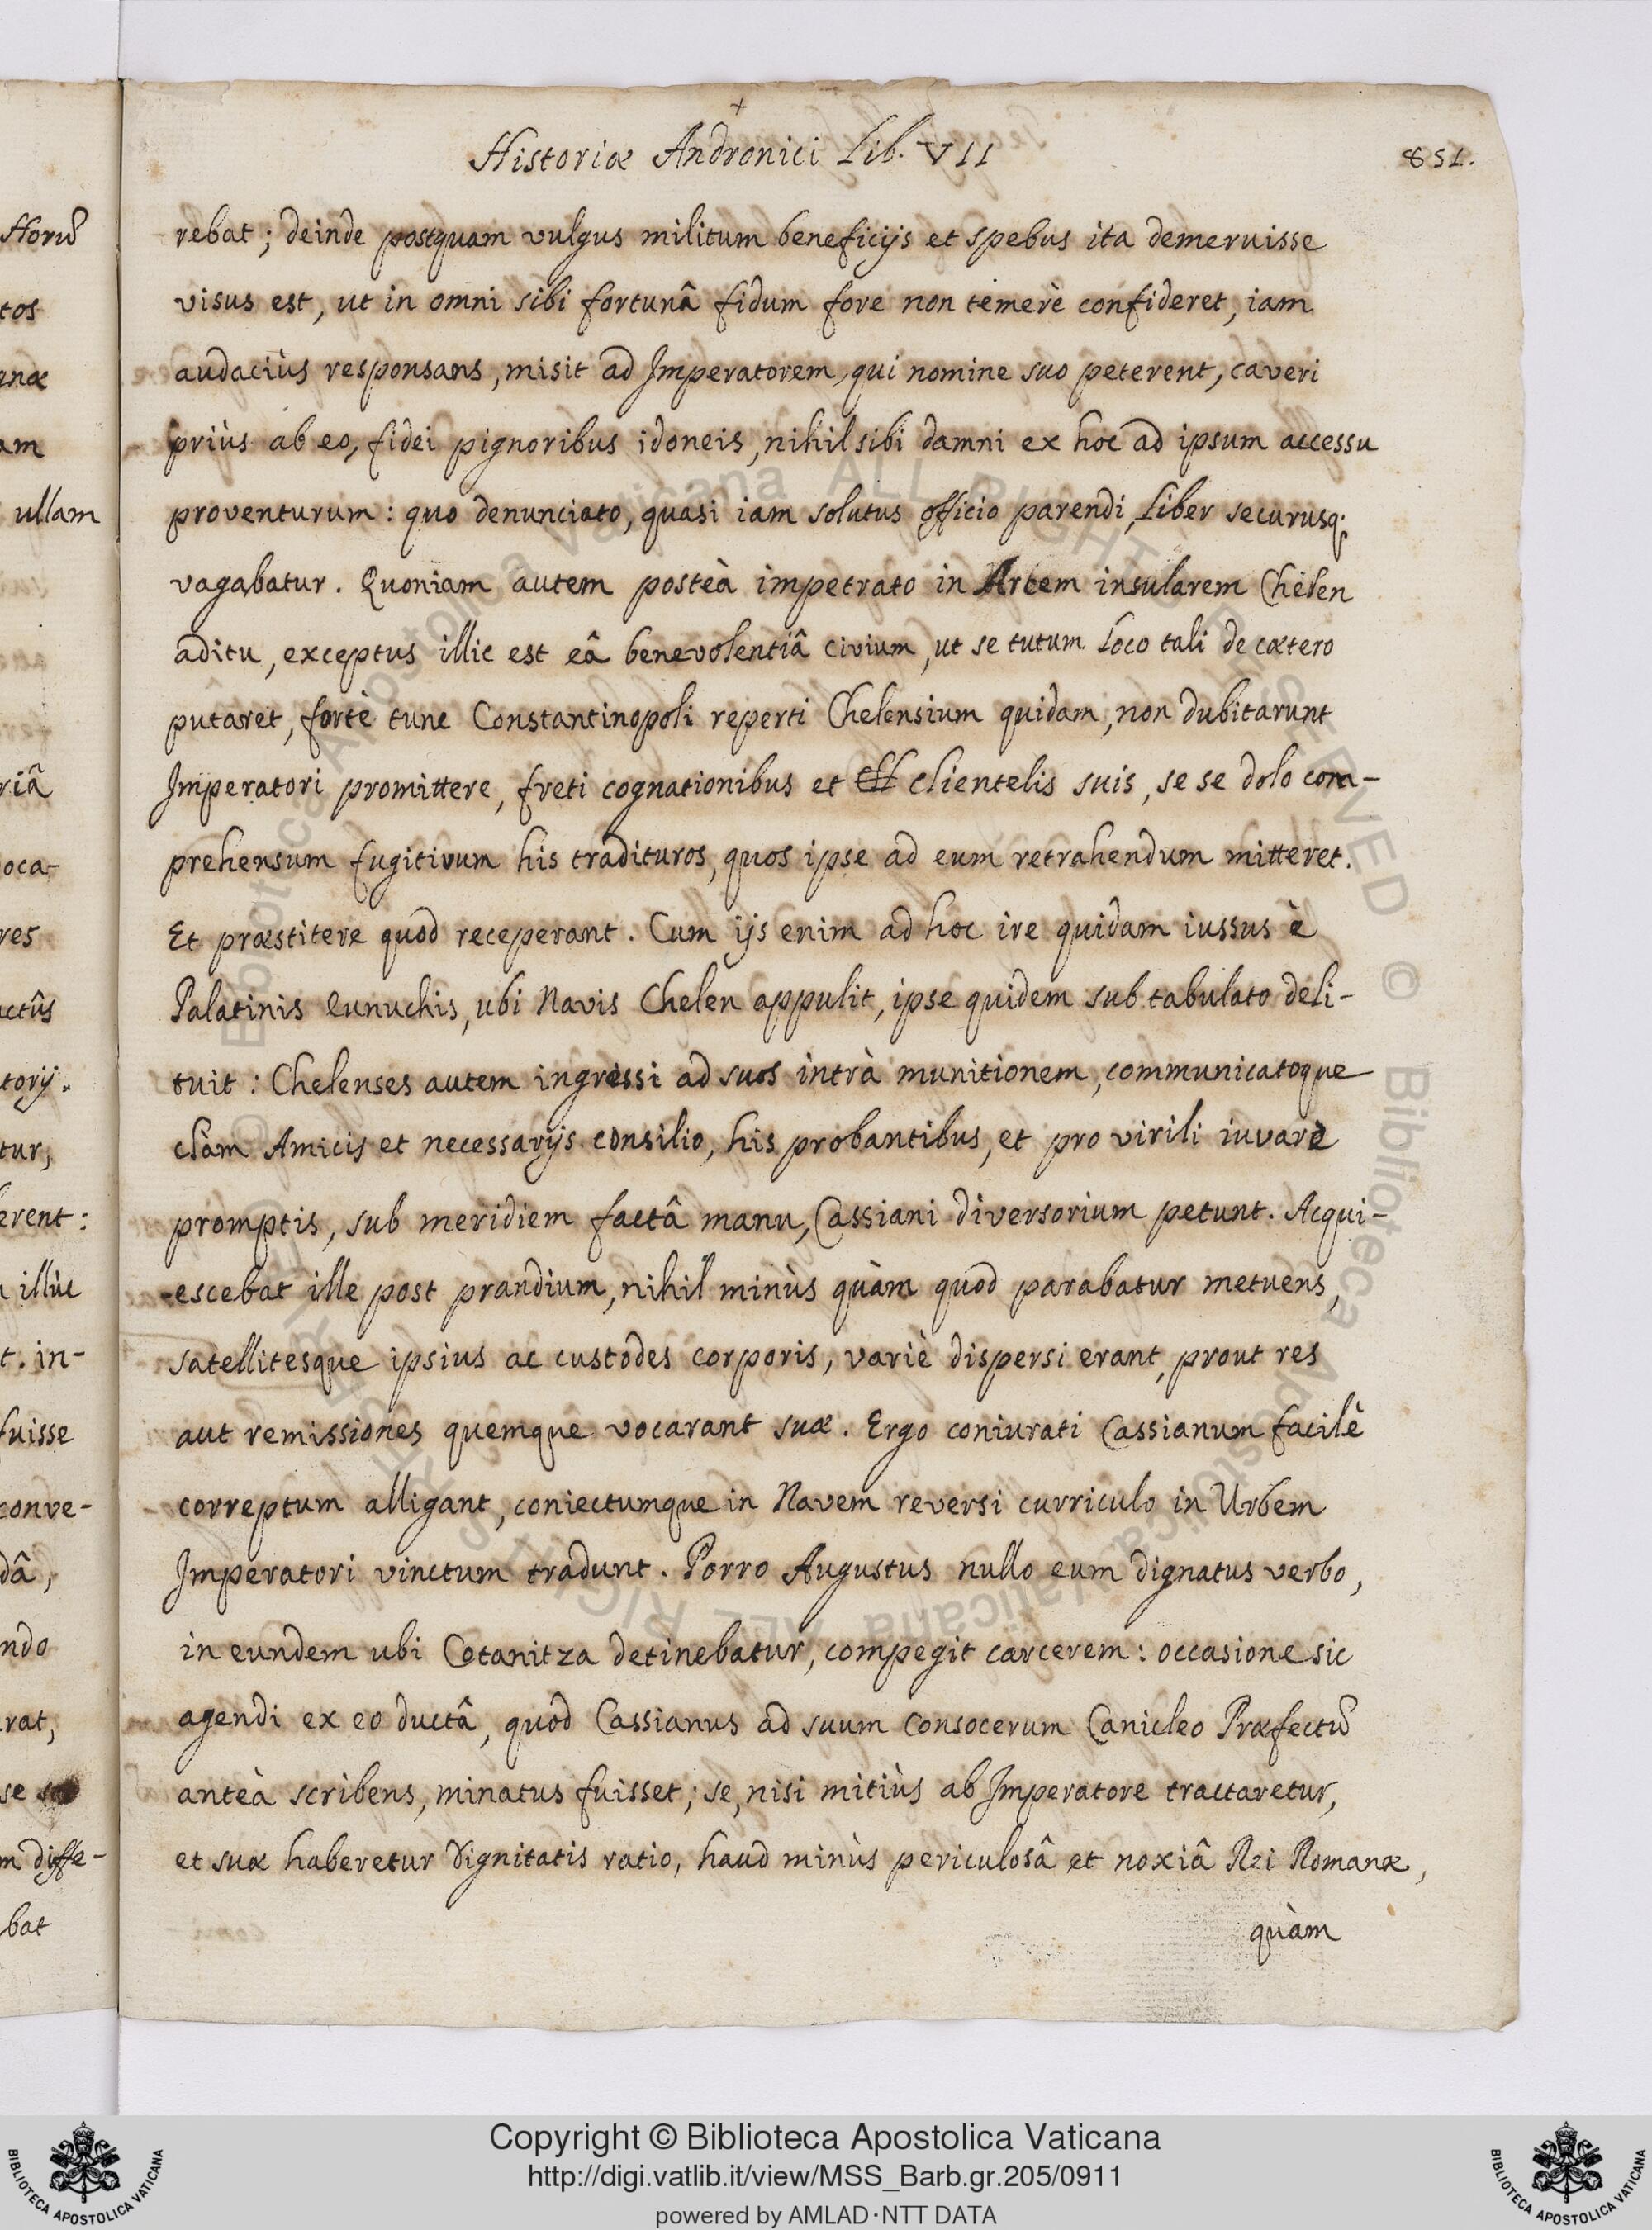 Historiæ Andronici Lib. VII
851.
rebat; deinde postquam vulgus militum beneficijs et spebus ita demeruisse
visus est, ut in omni sibi fortunâ fidum fore non temerè confideret, iam
audaciùs responsans, misit ad Imperatorem, qui nomine suo peterent, caveri
priùs ab eo, fidei pignoribus idoneis, nihil sibi damni ex hoc ad ipsum accessu
proventurum: quo denunciato, quasi iam solutus officio parendi, liber securusq;
vagabatur. Quoniam autem posteà impetrato in Arcem insularem Chelen
aditu, exceptus illic est eâ benevolentiâ civium, ut se tutum loco tali de cætero
putaret, fortè tunc Constantinopoli reperti Chelensium quidam, non dubitarunt
Imperatori promittere, freti cognationibus et clientelis suis, se se dolo com-
prehensum fugitivum his tradituros, quos ipse ad eum retrahendum mitteret.
Et præstitere quod receperant. Cum ijs enim ad hoc ire quidam iussus è
Palatinis eunuchis, ubi Navis Chelen appulit, ipse quidem sub tabulato deli-
tuit: Chelenses autem ingressi ad suos intrà munitionem, communicatoque
clàm Amicis et necessarijs consilio, his probantibus, et pro virili iuvare
promptis, sub meridiem factâ manu, Cassiani diversorium petunt. Acqui-
-escebat ille post prandium, nihil minùs quàm quod parabatur metuens,
satellitesque ipsius ac custodes corporis, variè dispersi erant, prout res
aut remissiones quemque vocarant suæ. Ergo coniurati Cassianum facilè
correptum alligant, coniectumque in Navem reversi curriculo in Urbem
Imperatori vinctum tradunt. Porro Augustus nullo eum dignatus verbo,
in eundem ubi Cotanitza detinebatur, compegit carcerem: occasione sic
agendi ex eo ductâ, quod Cassianus ad suum consocerum Canicleo Præfectũ
anteà scribens, minatus fuisset; se, nisi mitiùs ab Imperatore tractaretur,
et suæ haberetur dignitatis ratio, haud minùs periculosâ et noxiâ Rei Romanæ,
quàm
Horũ
tos
gnæ
am
ullam
riâ
oca-
res
ctûs
torij.
tur,
erent:
illùc
t. in-
fuisse
conve-
dâ,
ndo
rat,
se
m diffe-
bat
© Biblioteca Apostolica Vaticana ALL RIGHTS RESERVED © Biblioteca Apostolica Vaticana ALL RIGHTS RESERVED
Copyright © Biblioteca Apostolica Vaticana
http://digi.vatlib.it/view/MSS_Barb.gr.205/0911
powered by AMLAD·NTT DATA
BIBLIOTECA APOSTOLICA VATICANA
BIBLIOTECA APOSTOLICA VATICANA